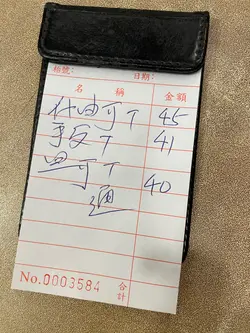 檯號: 日期:
名稱 金額
什油可T 45
手反T 41
旦可T 40
通
No.0003584 合計